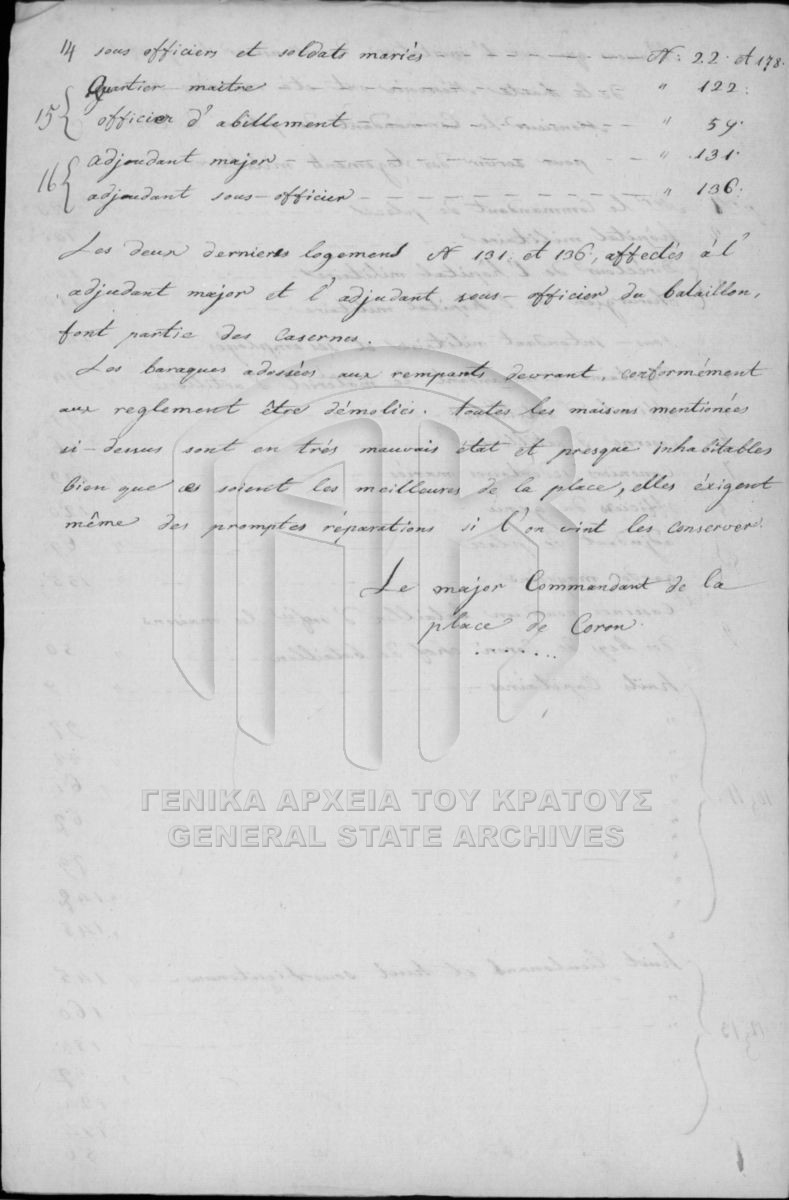 14 sous officiers et soldats mariés N: 22. et 178.
Quartier maitre " 122.
15 { officier d'abillement " 59.
16 { Adjoudant major " 131.
adjoudant sous-officier " 136.
Les deux dernieres logement N 131. et 136, affectés à l'
adjudant major et l'adjudant sous-officier du bataillon,
font partie des Casernes.
Les baraques adossées aux remparts devrant, conformément
aux reglement être démolies. toutes les maisons mentionées
si-dessus sont en trés mauvais état et presque inhabitables
bien que ces soient les meilleures de la place, elles éxigent
même des promptes réparations si l'on vint les conserver.
Le major Commandant de la
place de Coron.
ΓΕΝΙΚΑ ΑΡΧΕΙΑ ΤΟΥ ΚΡΑΤΟΥΣ
GENERAL STATE ARCHIVES